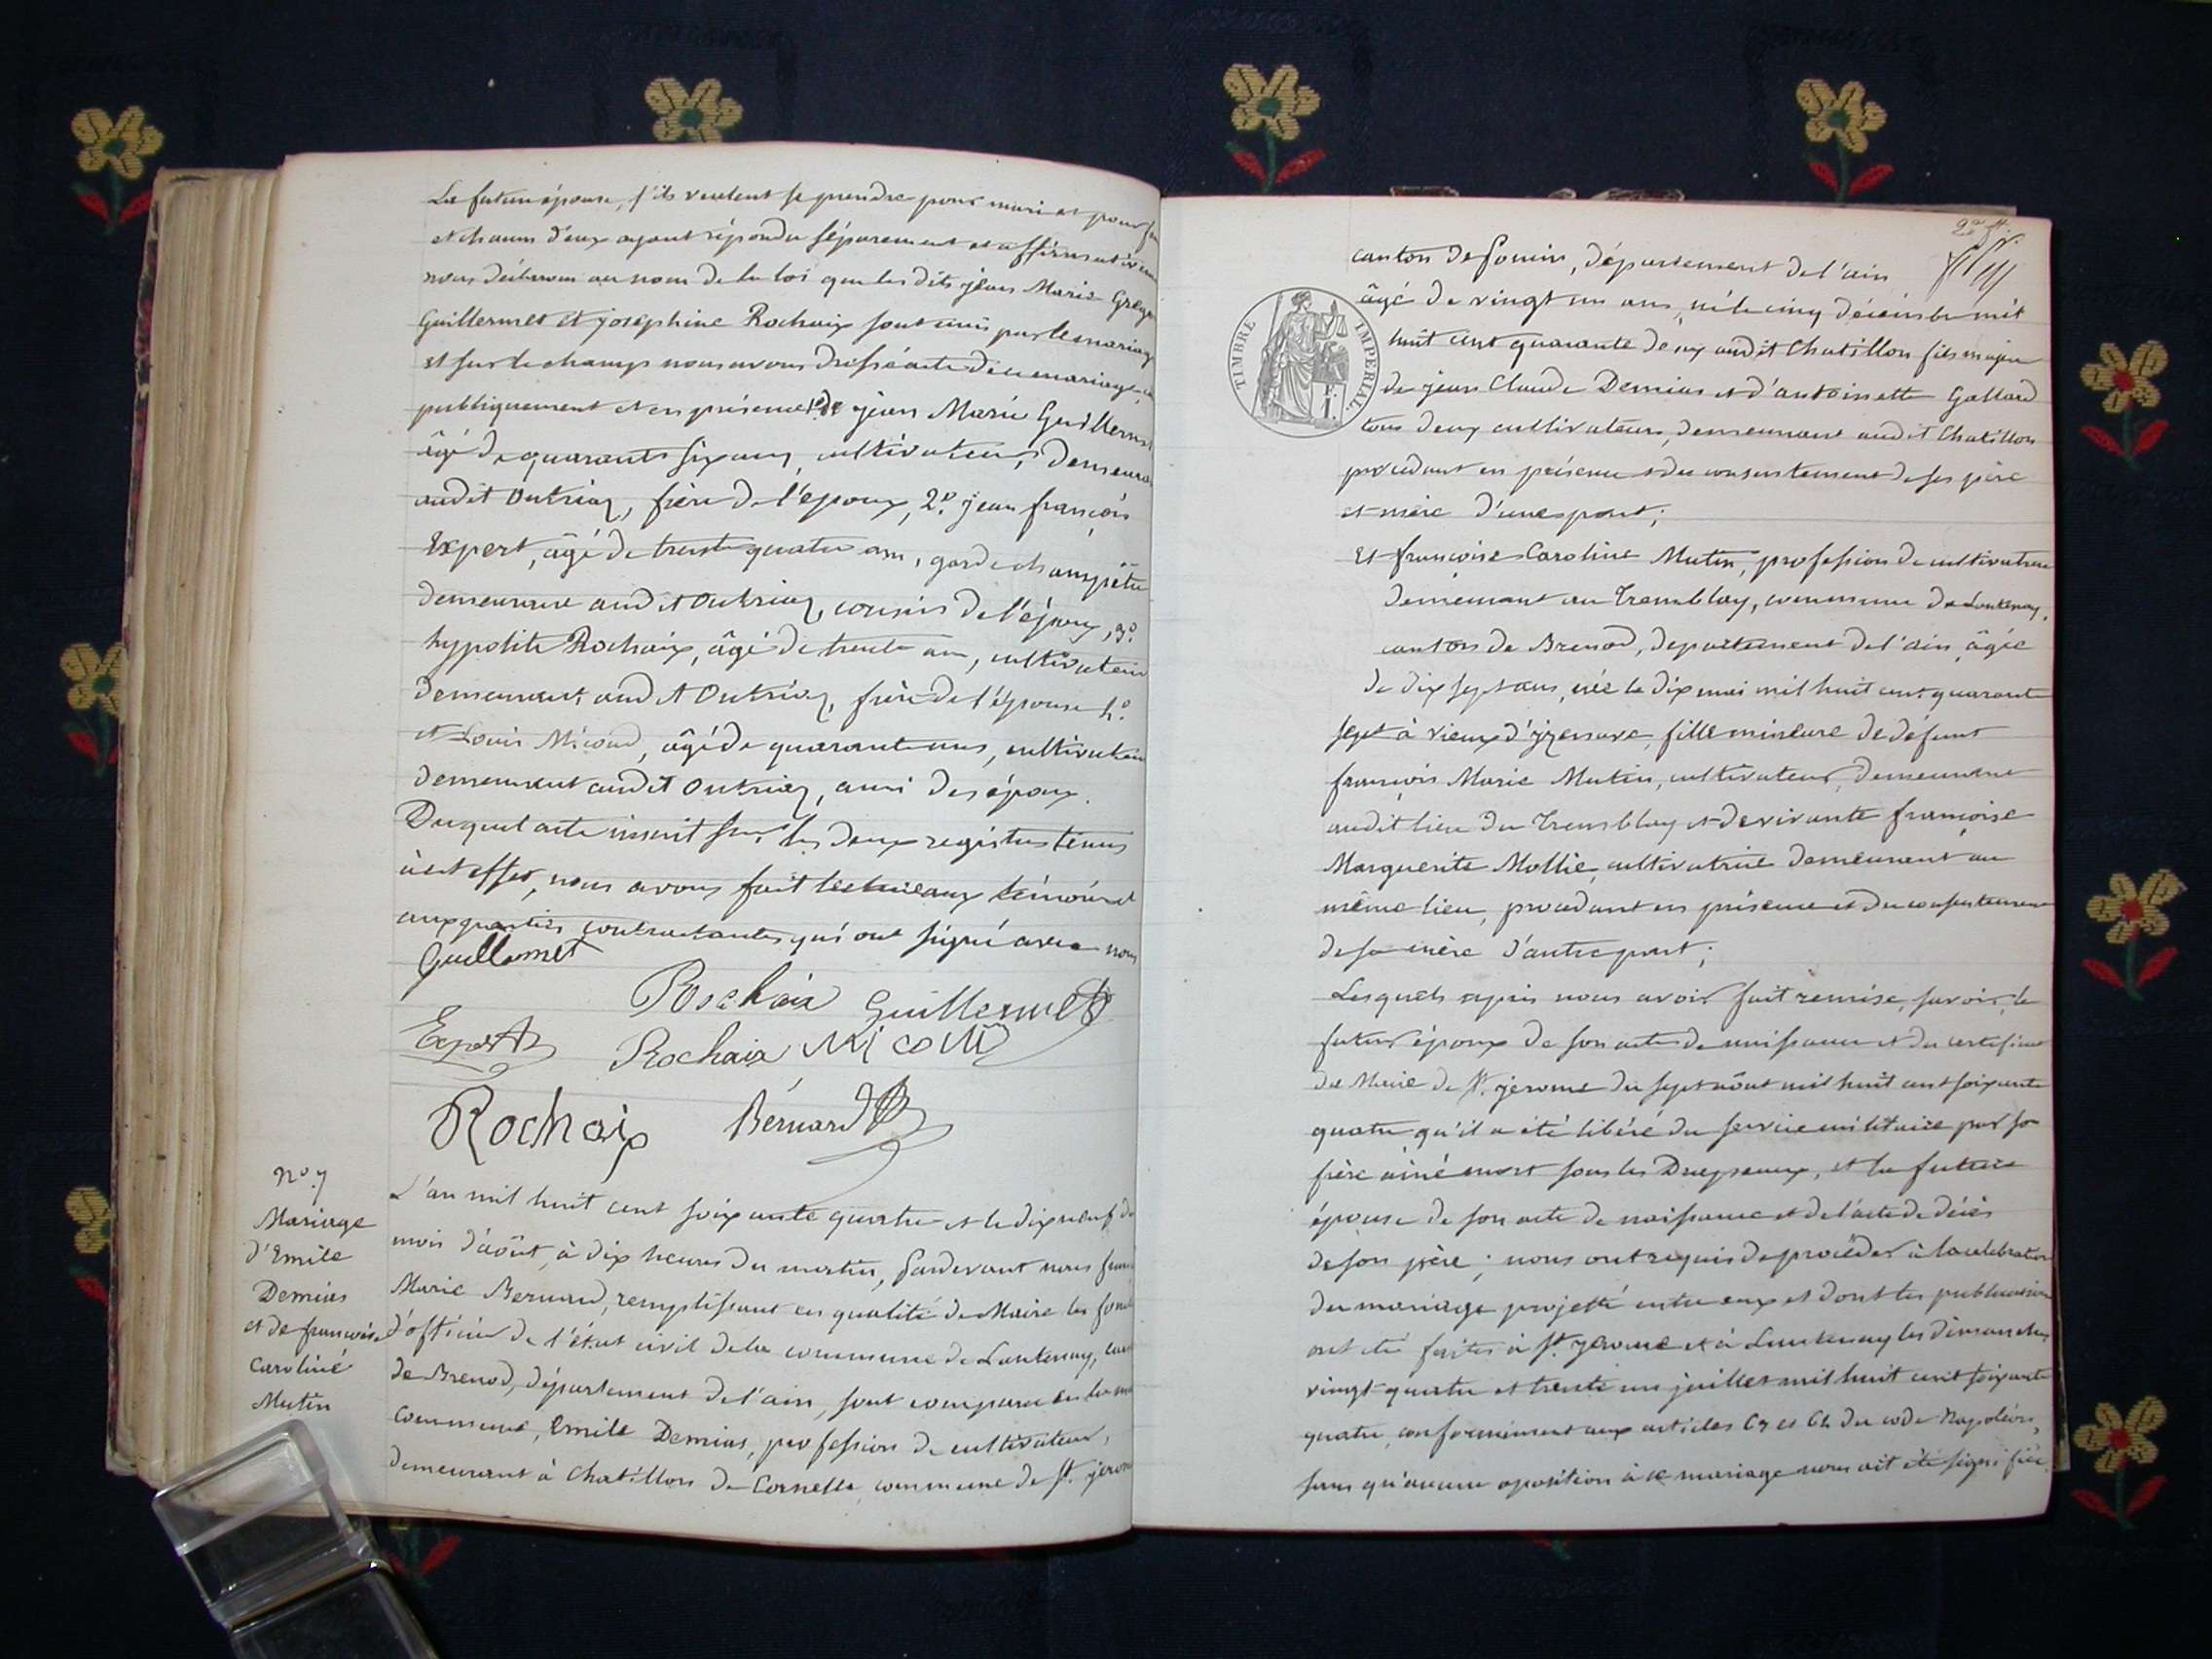 La future épouse, s'ils veulent se prendre pour mari et pour
et chacun d'eux ayant répondu séparement et affirmativem
nous déclarons au nom de la loi que les dits jean Marie Grego
Guillermet et josephine Rochaix sont unis par le mariage
et sur le champ nous avons dressé acte de ce mariage
publiquement et en présence 1º de jean Marie Guillermet
âgé de quarante six ans, cultivateur, demeura
audit Outriaz, frère de l'époux, 2º jean françois
Expert, âgé de trente quatre ans, garde champêtre
demeurant audit Outriaz, cousin de l'époux, 3º
hypolite Rochaix, âgé de trente ans, cultivateur
demeurant audit Outriaz, frère de l'épouse 4º
et Louis Micoud, âgé de quarante ans, cultivateur
demeurant audit Outriaz, ami des époux.
Duquel acte inscrit sur les deux registres tenus
à cet effet, nous avons fait lecture aux témoins et
aux parties contractantes qui ont signé avec nous
Guillermet
Rochaix Guillermet
Expert Rochaix Micoud
Rochaix Bernard
Nº 7
Mariage
d'Emile
Demias
et de françoise
Caroline
Mutin
L'an mil huit cent soixante quatre et le dix neuf du
mois d'août, à dix heures du matin, Pardevant nous
Marie Bernard, remplissant en qualité de Maire les fonct
d'officier de l'état civil de la commune de Lantenay, cant
de Brenod, département de l'ain, sont comparu en la
commune, Emile Demias, profession de cultivateur,
demeurant à Chatillon de Cornelle, commune de St. jerome
canton de Poncin, département de l'ain
âgé de vingt un ans, né le cinq décembre mil
TIMBRE IMPERIAL
huit cent quarante deux audit Chatillon fils majeur
de jean Claude Demias et d'antoinette Galland
tous deux cultivateurs, demeurant audit Chatillon
procédant en présence et du consentement de ses père
et mère d'une part;
Et françoise Caroline Mutin, profession de cultivatrice
demeurant au Tremblay, commune de Lantenay,
canton de Brenod, departement de l'ain âgée
de dix sept ans, née le dix mai mil huit cent quarante
sept à vieux d'yzenave, fille mineure de défunt
françois Marie Mutin, cultivateur, demeurant
audit lieu du Tremblay et de vivante françoise
Marguerite Mollie, cultivatrice demeurant au
même lieu, procedant en présence et du consentement
de sa mère d'autre part;
Lesquels après nous avoir fait remise, savoir, le
futur époux de son acte de naissance et du certificat
du Maire de St. jerome du sept août mil huit cent soixante
quatre qu'il a été libéré du service militaire par so
frère ainé mort sous les Drapeaux, et la future
épouse de son acte de naissance et de l'acte de décès
de son père; nous ont requis de procéder à la celebration
du mariage projetté entre eux et dont les publications
ont été faites à St. jerome et à Lantenay les dimanches
vingt-quatre et trente un juillet mil huit cent soixante
quatre, conformement aux articles 63 et 64 du code Napoléon,
sans qu'aucune oposition à ce mariage nous ait été signifiée